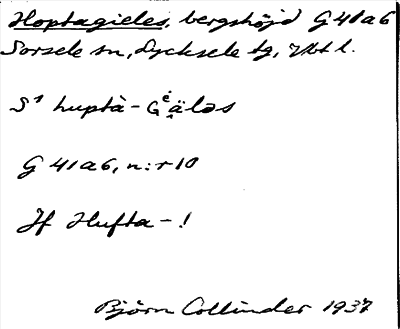 Hoptagieles, bergshöjd G 41 a 6
Sorsele sn, Lycksele tg, Vbt l.
huptà-
G 41 a 6, n:r 10
Jf Hufta-!
Björn Collinder 1937